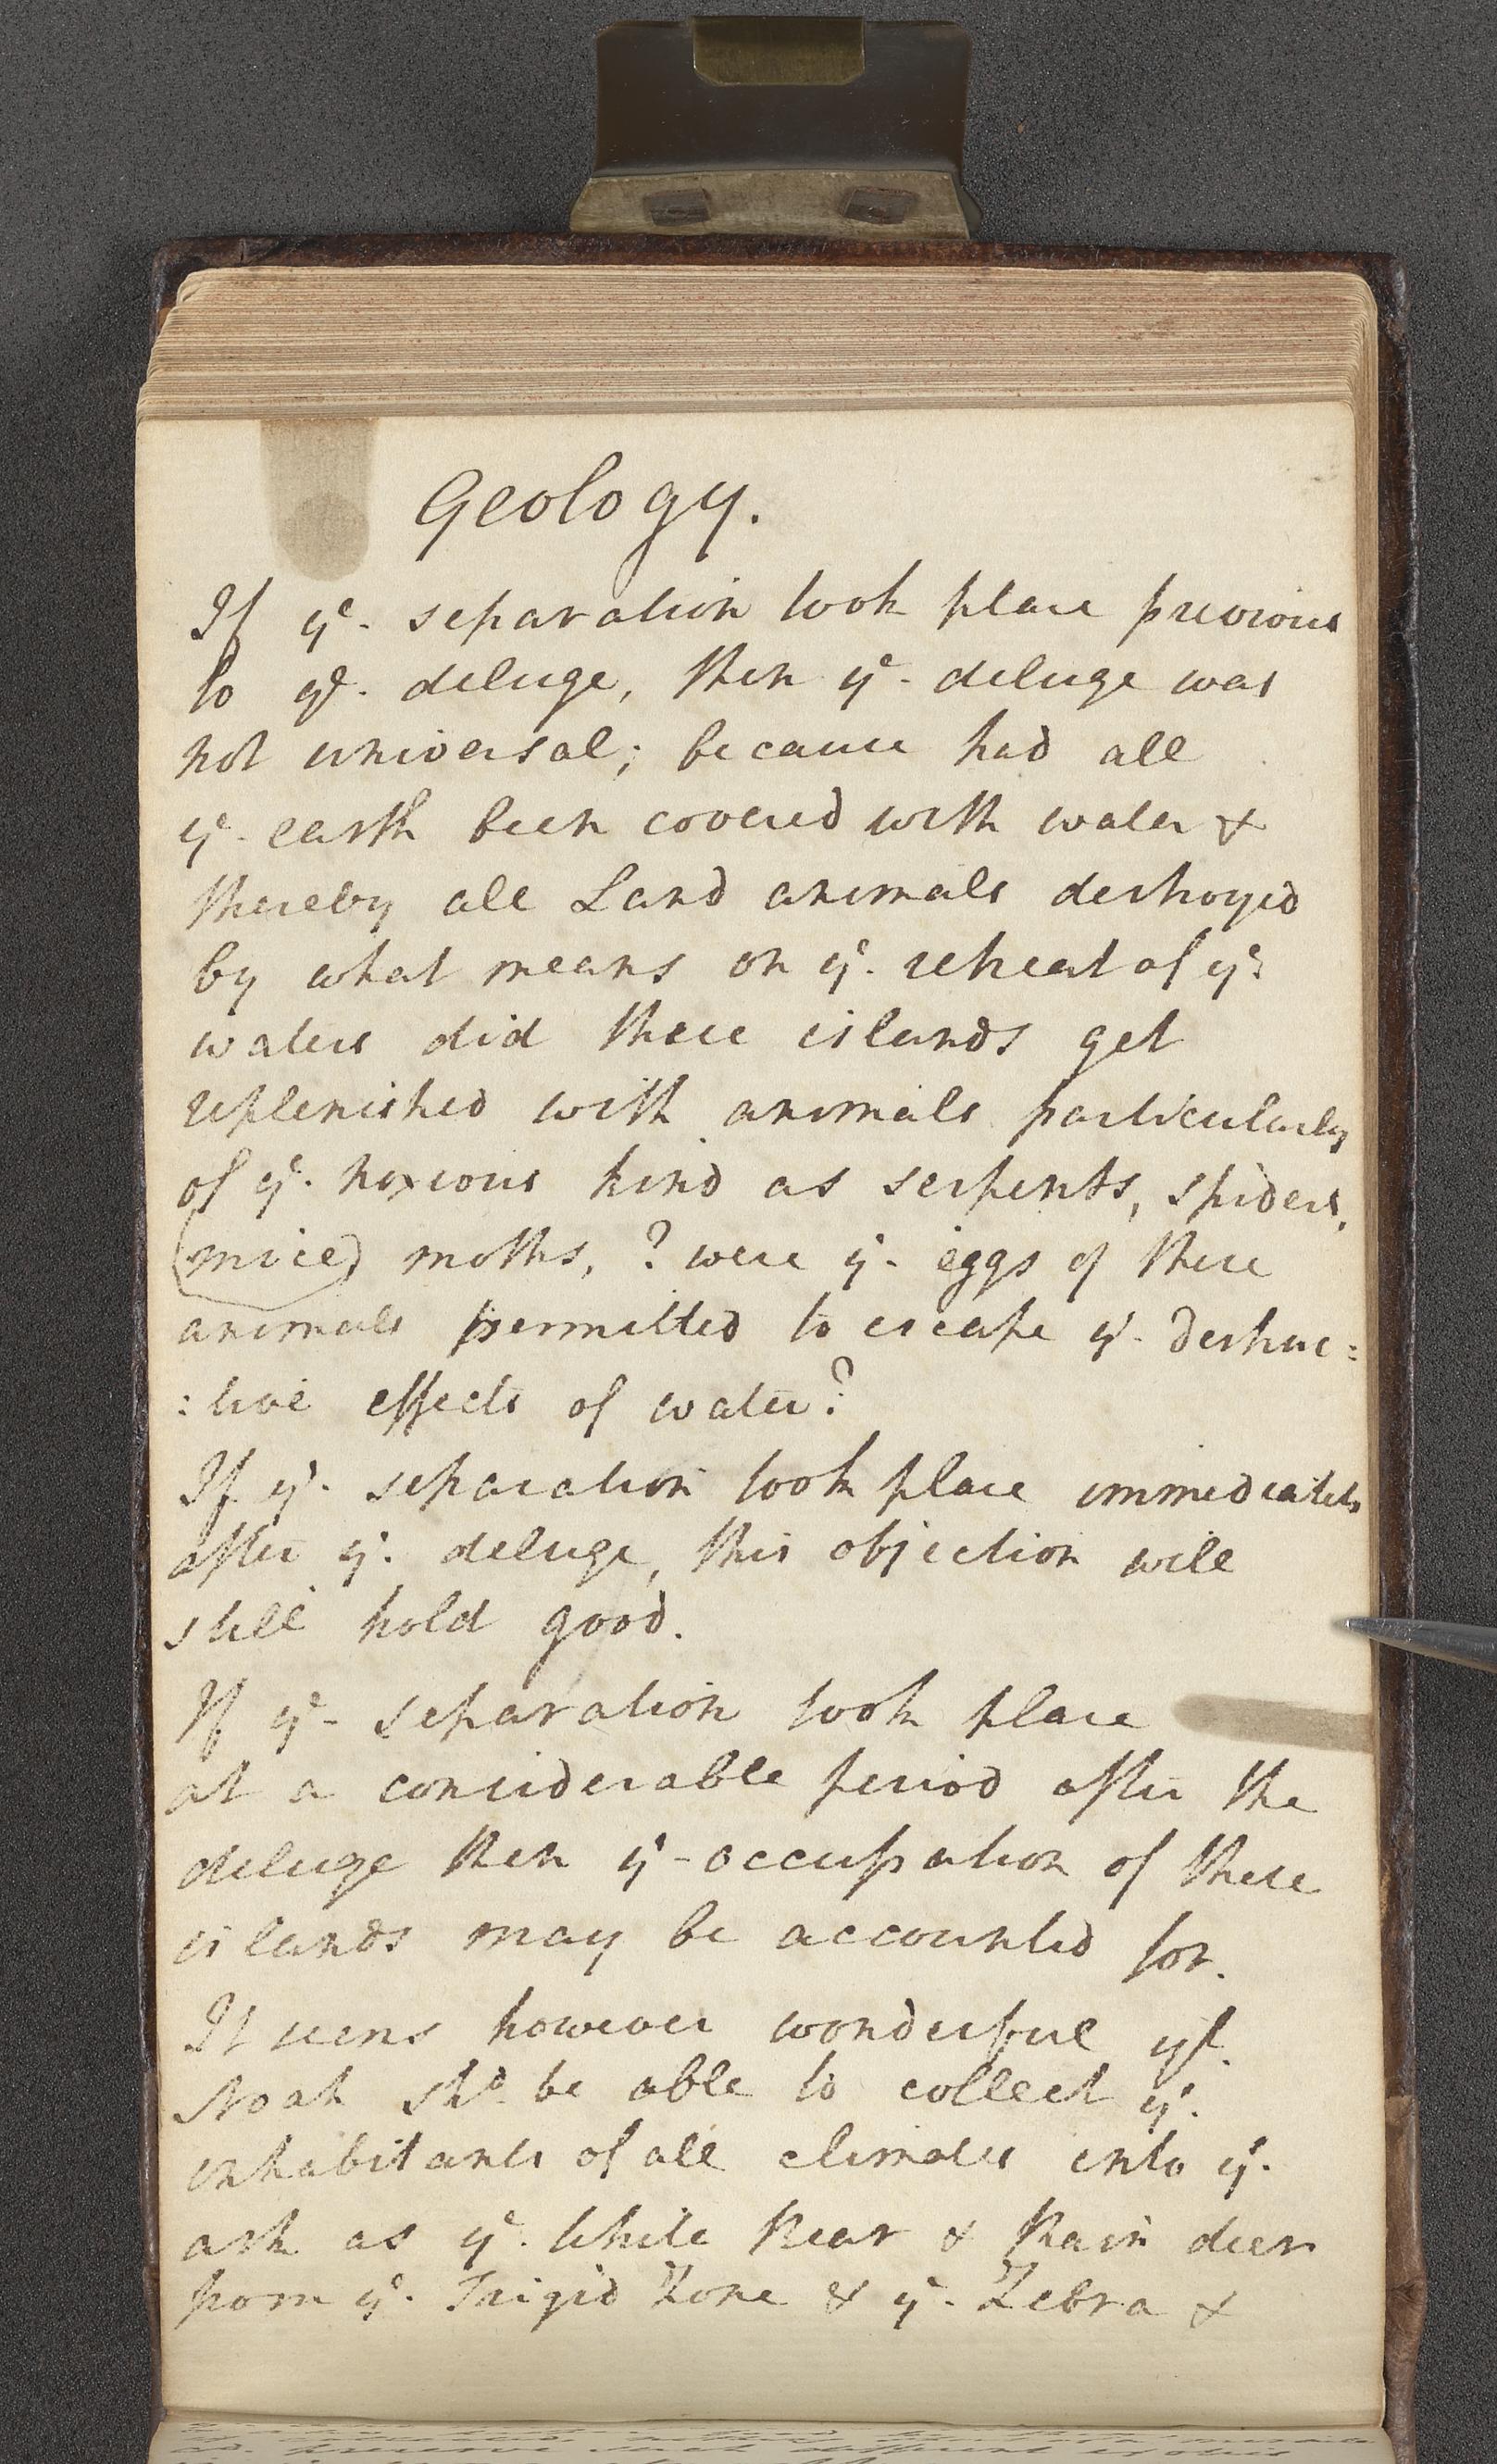 Geology.
If ye. separation took place previous
to ye. deluge, then ye. deluge was
not universal; because had all
ye. earth been covered with water &
thereby all Land animals destroyed
by what means on ye. retreat of ye.
waters did these islands get
replenished with animals particularly
of ye. noxious kind as serpents, spiders,
(mice) moths, ? were ye. eggs of these
animals permitted to escape ye. destruc=
:tive effects of water?
If ye. separation took place immediately
after ye. deluge, this objection will
still hold good.
If ye. separation took place
at a considerable period after the
deluge then ye. occupation of these
islands may be accounted for.
It seems however wonderful yt.
Noah shd. be able to collect ye.
inhabitants of all climates into ye.
ark as ye. White Bear & Rain deer
from ye. Frigid Zone & ye. Zebra &